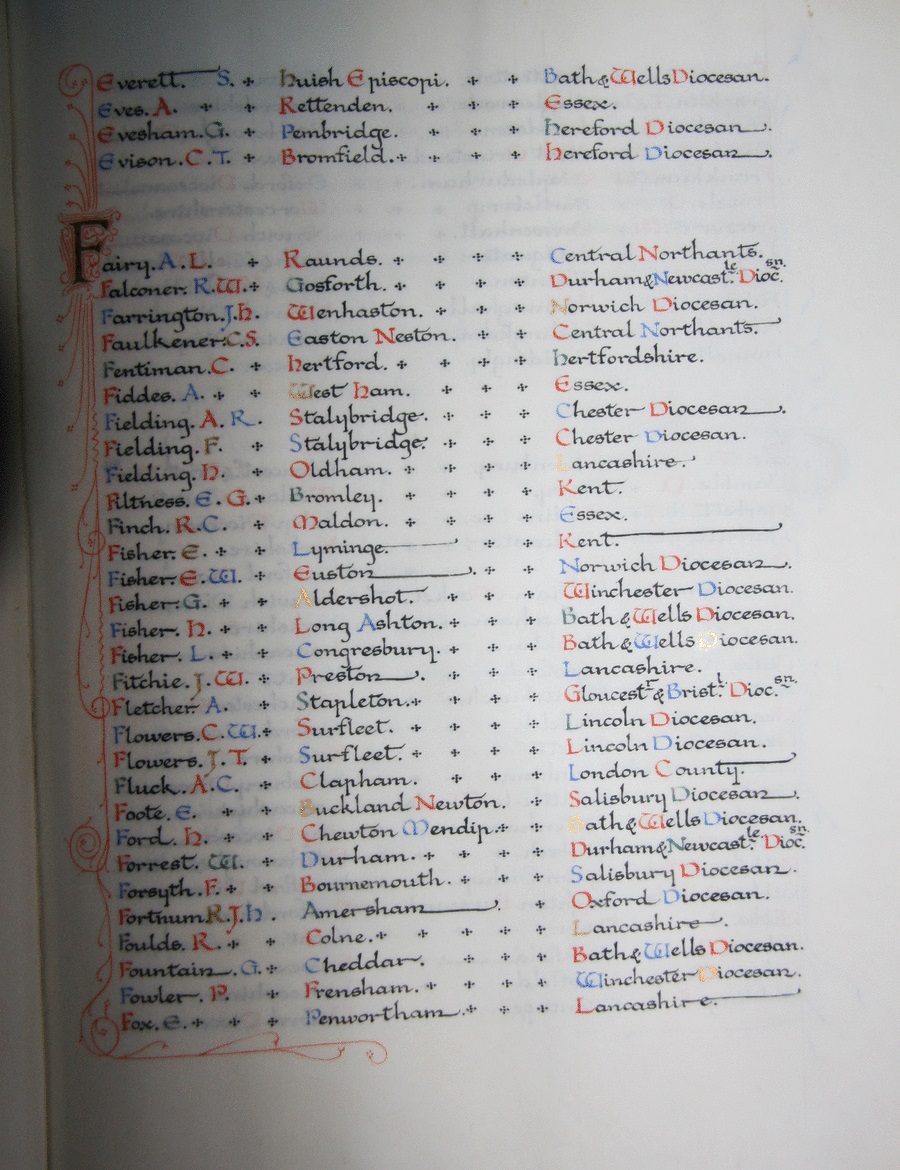 Everett. S. Huish Episcopi. Bath & Wells Diocesan.
Eves. A. Rettenden. Essex.
Evesham. G. Pembridge. Hereford Diocesan.
Evison. C. T. Bromfield. Hereford Diocesan.
Fairy. A. L. Raunds. Central Northants.
Falconer. R. W. Gosforth. Durham & Newcastle. Diocsn.
Farrington. J. H. Wenhaston. Norwich Diocesan.
Faulkener. C. S. Easton Neston. Central Northants.
Fentiman. C. Hertford. Hertfordshire.
Fiddes. A. West Ham. Essex.
Fielding. A. R. Stalybridge. Chester Diocesan.
Fielding. F. Stalybridge. Chester Diocesan.
Fielding. H. Oldham. Lancashire.
Filtness. E. G. Bromley. Kent.
Finch. R. C. Maldon. Essex.
Fisher. E. Lyminge. Kent.
Fisher. E. W. Euston. Norwich Diocesan.
Fisher. G. Aldershot. Winchester Diocesan.
Fisher. H. Long Ashton. Bath & Wells Diocesan.
Fisher. L. Congresbury. Bath & Wells Diocesan.
Fitchie. J. W. Preston. Lancashire.
Fletcher. A. Stapleton. Gloucestr & Bristl. Diocsn.
Flowers. C. W. Surfleet. Lincoln Diocesan.
Flowers. J. T. Surfleet. Lincoln Diocesan.
Fluck. A. C. Clapham. London County.
Foote. E. Buckland Newton. Salisbury Diocesan.
Ford. H. Chewton Mendip. Bath & Wells Diocesan.
Forrest. W. Durham. Durham & Newcastle. Diocsn.
Forsyth. F. Bournemouth. Salisbury Diocesan.
Fortnum. R. J. H. Amersham. Oxford Diocesan.
Foulds. R. Colne. Lancashire.
Fountain. G. Cheddar. Bath & Wells Diocesan.
Fowler. P. Frensham. Winchester Diocesan.
Fox. E. Penwortham. Lancashire.